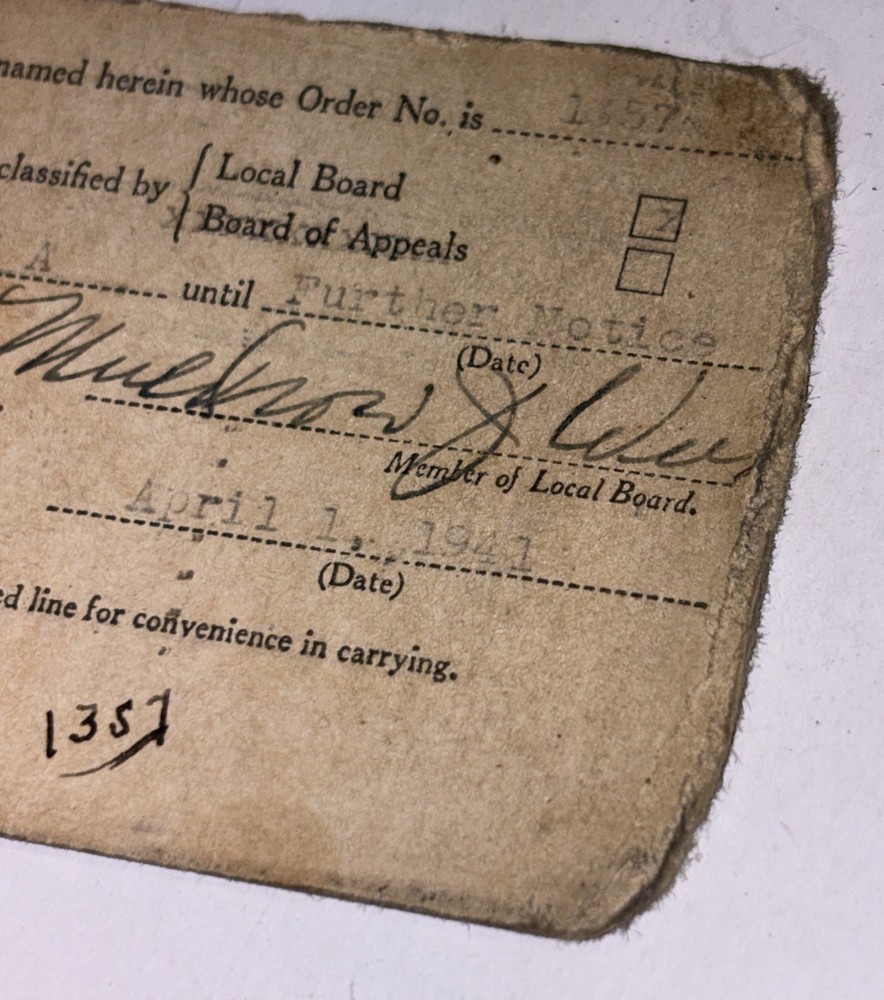 named herein whose Order No. is
classified by { Local Board X
Board of Appeals
A until Further Notice
(Date)
Member of Local Board.
April 1, 1941
(Date)
ed line for convenience in carrying.
1357